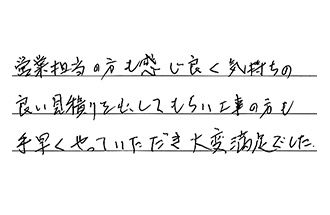 営業担当の方も感じ良く気持ちの
良い見積りをだしてもらい工事の方も
手早くやっていただき大変満足でした.